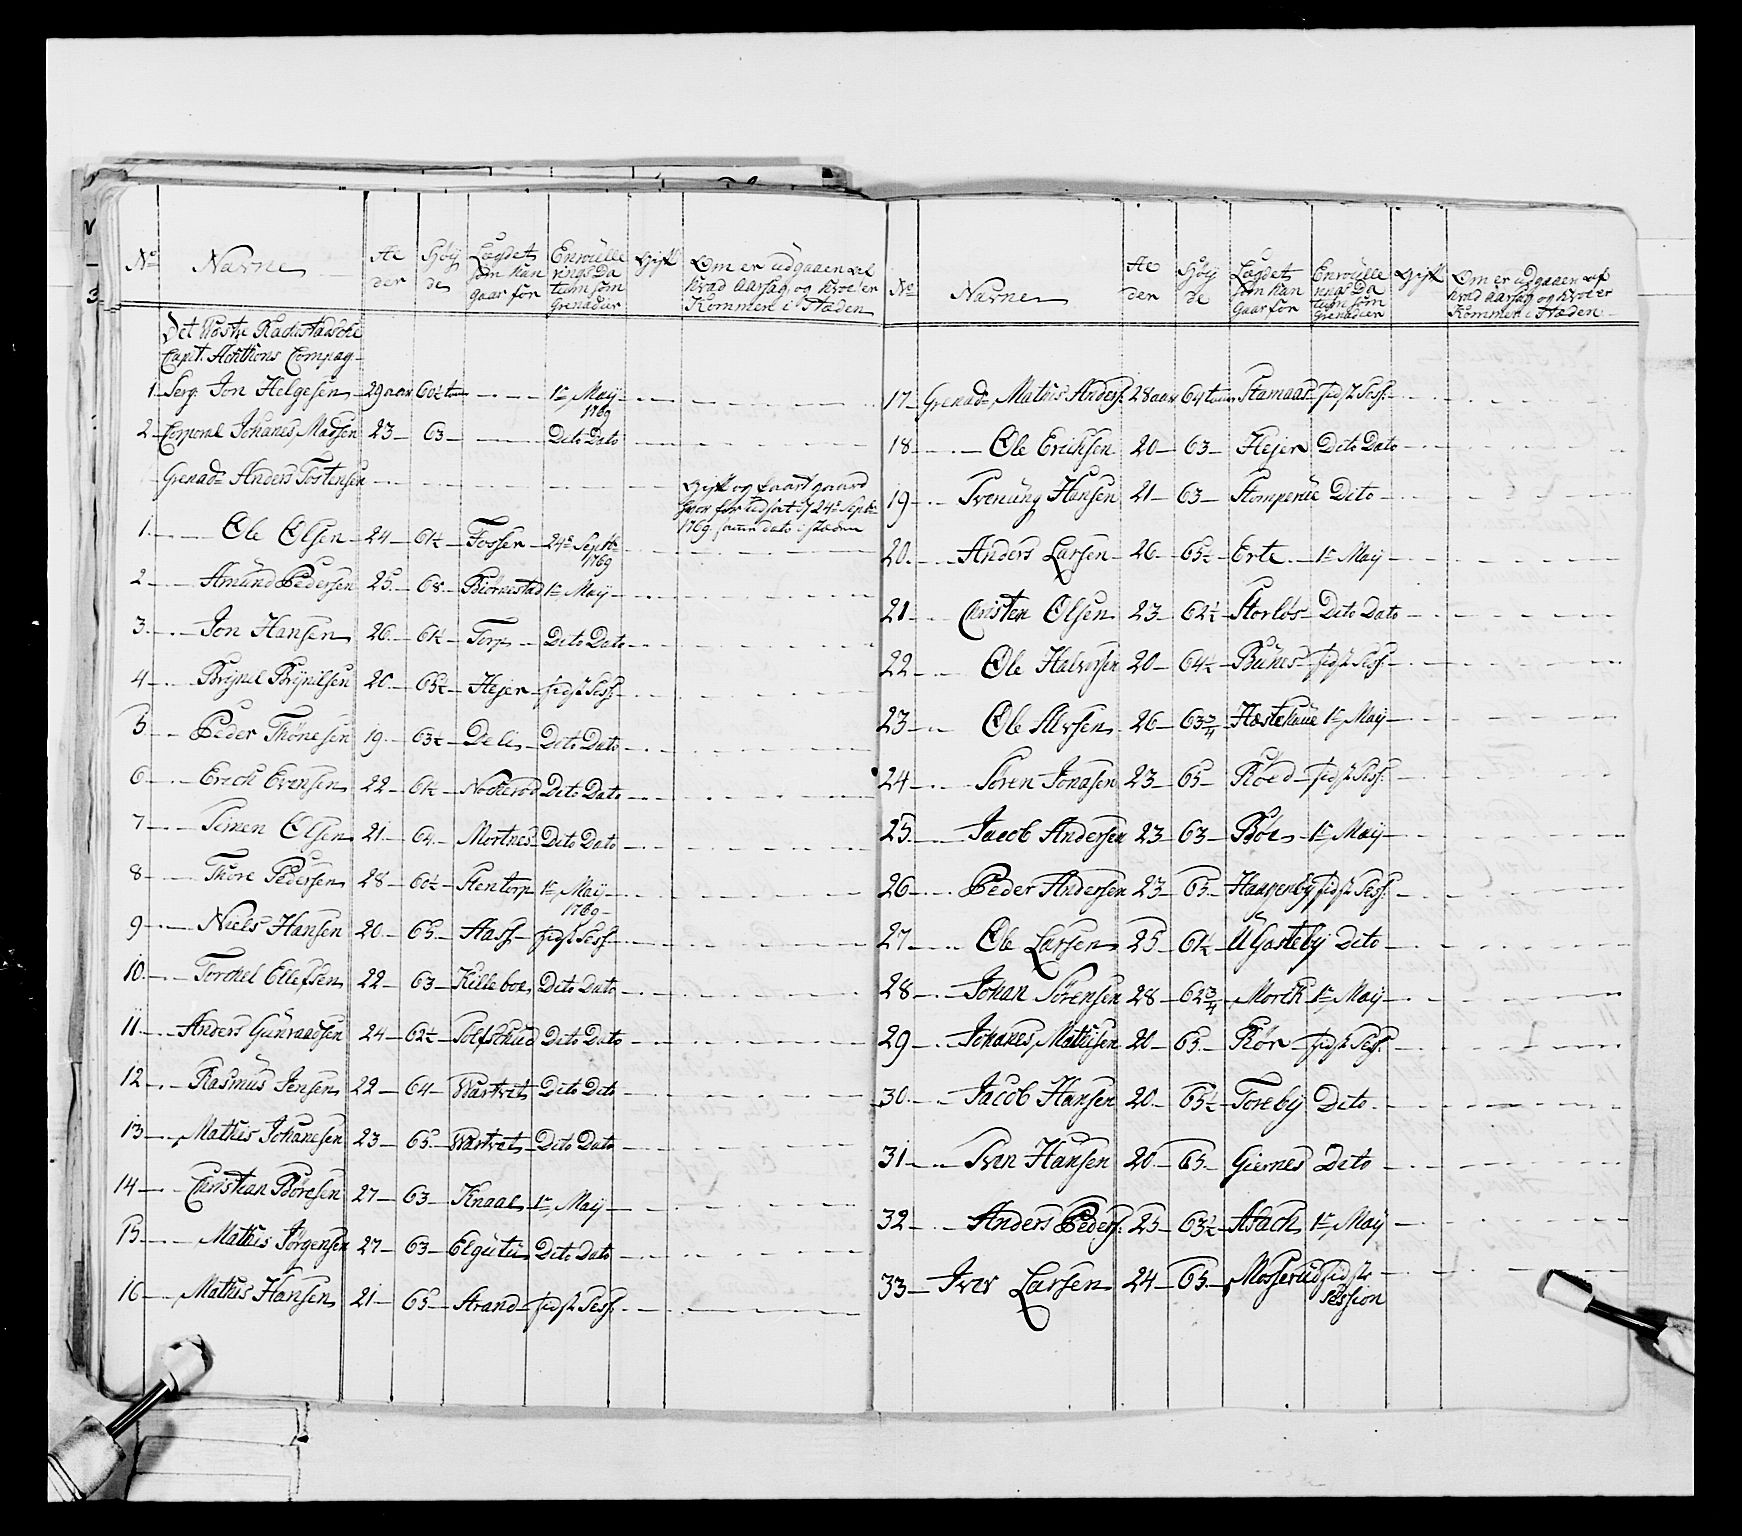 No Navne Al der Høy de Lægdet som han gaar for Enroulle rings Da tum som Grenadeer Gift Om er udgaaen af hvad Aarsag, og hvo er Kommen i Stæden
Capt. Compag
1 Serg. Jon Helgesen 29 aar 60½ tom 1e May 1769
2 Corporal Johanes Madsen 23 63 Dito Dato
Grenadr Anders Tostensen Gift og faaet gaard 24e Septbr 1769
1. Ole Olsen 24 61½ Fosser 24e Septbr 1769
2 Amund Pedersen 25 68 Biørnestad 1e May
3 Jon Hansen 26 61½ Torp Dito Dato
4 Brynil Brynilsen 20 65½ Hejer sidst Sess.
5 Peder Thønesen 19 63½ De lis Dito Dato
6 Erich Evensen 22 61½ Nocherød Dito Dato
7 Simen Olsen 21 64 Mortnes Dito Dato
8 Thore Pedersen 28 60½ Stentorp 1e May 1769
9 Niels Hansen 20 65 Aass sidst Sess.
10 Torckel Ellefsen 22 63 Killeboe Dito Dato
11 Anders Gunvaldsen 24 62½ Dito Dato
12 Rasmus Jensen 22 64 Wartvet Dito Dto
13 Mathis Johanesen 23 65 Wartvet Dito Dato
14 Christian Børesen 27 63 Knaal 1e May
15 Mathis Jørgensen 27 63 Elgutu Dito Dato
16 Mathis Hansen 21 65 Strand sidst Sess.
No Navne Al der Høy de Lægdet som han Gaar for Enroulle rings Da tum som Grenadeer Gift Om er udgaaen af hvad Aarsag og hvo er Kommen i Stæden
17 Grenadr Mathis Anders: 28 aar 64 tom Stamaas sidst Sess.
18 Ole Erichsen 20 63 Hejer Dito Dato
19 Svenung Hansen 21 63 Stomperue Dito
20 Anders Larsen 26 65½ Erte 1e May
21 Christen Olsen 23 62½ Storløs Dito Dato
22 Ole Halvorsen 20 64½ Bunes sidst Sess.
23 Ole Alvsen 26 63¾ Hæstehaue 1e May
24 Søren Jonasen 23 65 Røed sidst Sess.
25 Jacob Andersen 23 63 Bøe 1e May
26 Peder Andersen 23 65 Haagenby sidst Sess.
27 Ole Larsen 25 61½ U Gasteby Dito
28 Johan Sørensen 28 62¾ Morck 1e May
29 Johanes Mathisen 20 65 Rør sidst Sess.
30 Jacob Hansen 20 65½ Toreby Dito
31 Sven Hansen 20 65 Giernes Dito
32 Anders Peders: 25 63½ Asach 1e May
33 Iver Larsen 24 65 Mosserud sidste Session